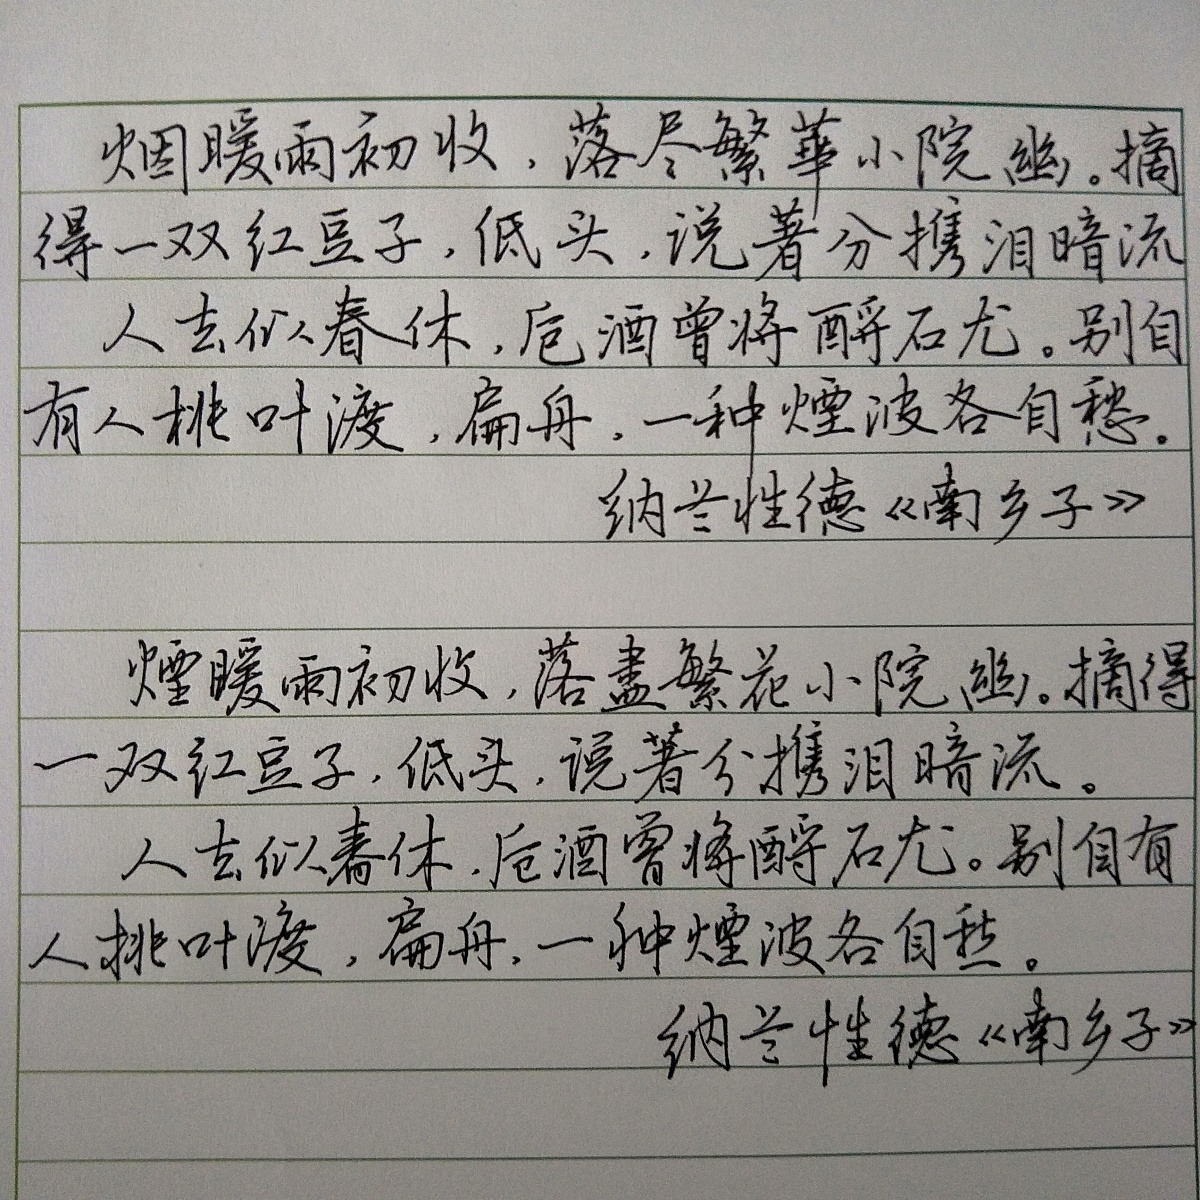 烟暖雨初收，落尽繁華小院幽。摘
得一双红豆子，低头，说著分携泪暗流
人去似春休，卮酒曾将酹石尤。别自
有人桃叶渡，扁舟，一种煙波各自愁。
纳兰性德《南乡子》
煙暖雨初收，落盡繁花小院幽。摘得
一双红豆子，低头，说著分携泪暗流。
人去似春休，卮酒曾将酹石尤。别自有
人桃叶渡，扁舟，一种煙波各自愁。
纳兰性德《南乡子》